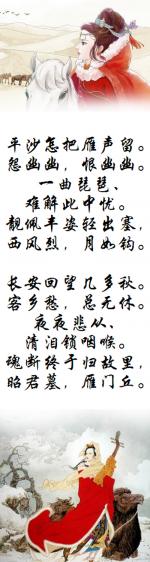 平沙怎把雁声留。
怨幽幽，恨幽幽。
一曲琵琶、
难解此中忧。
靓佩丰姿轻出塞，
西风烈，月如钩。
长安回望几多秋。
客乡愁，总无休。
夜夜悲从、
清泪锁咽喉。
魂断终于归故里，
昭君墓，雁门丘。